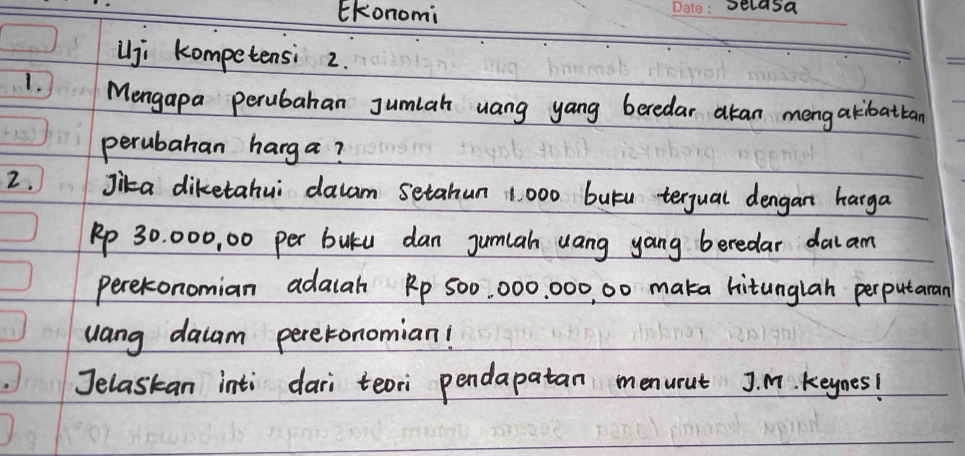 Ekonomi
Date: Selasa
Uji kompetensi 2.
1. Mengapa perubahan jumlah uang yang beredar akan mengakibatkan
perubahan harga?
2. Jika diketahui dalam setahun 1.000 buku terjual dengan harga
Rp 30.000,00 per buku dan jumlah uang yang beredar dalam
perekonomian adalah Rp 500.000.000,00 maka hitunglah perputaran
uang dalam perekonomian!
Jelaskan inti dari teori pendapatan menurut J.M. Keynes!